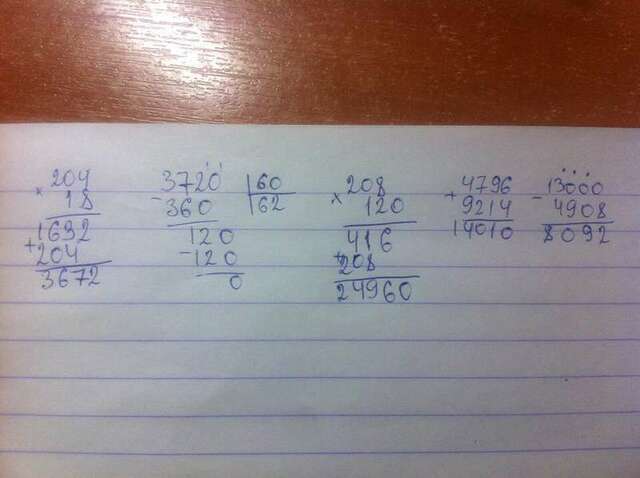 × 204
18
1632
+ 204
3672
3720 | 60
- 360 | 62
120
- 120
0
× 208
120
416
+ 208
24960
+ 4796
9214
14010
- 13000
4908
8092